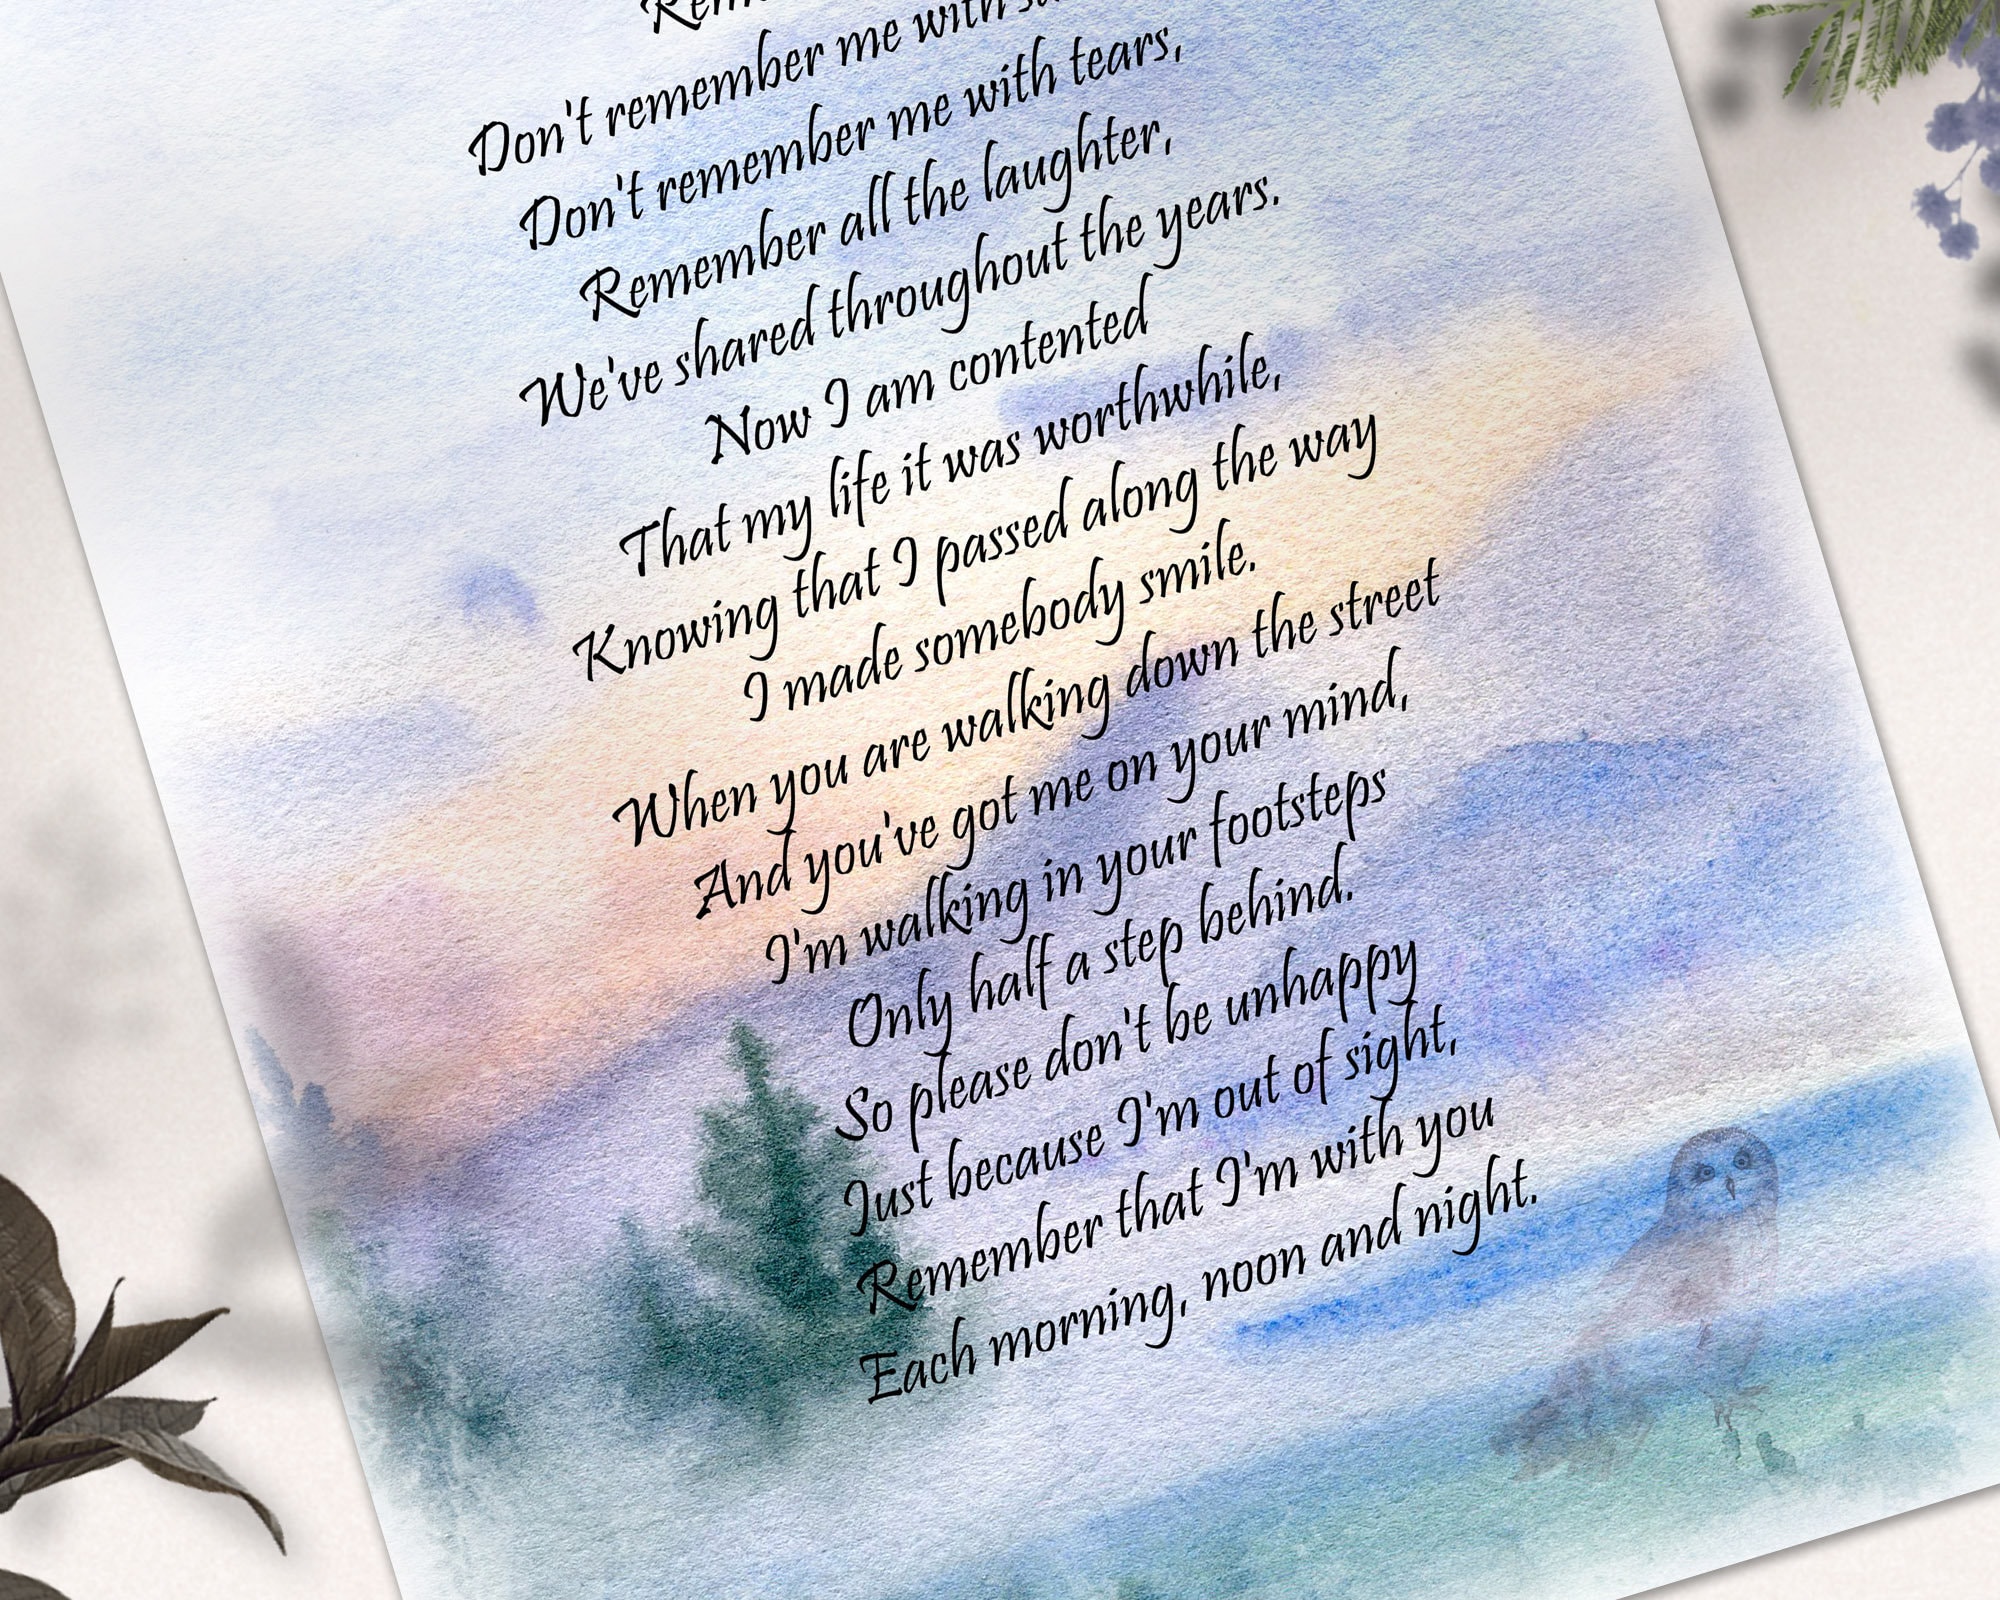 Don't remember me with
Don't remember me with tears,
Remember all the laughter,
We've shared throughout the years.
Now I am contented
That my life it was worthwhile,
Knowing that I passed along the way
I made somebody smile.
When you are walking down the street
And you've got me on your mind,
I'm walking in your footsteps
Only half a step behind.
So please don't be unhappy
Just because I'm out of sight,
Remember that I'm with you
Each morning, noon and night.